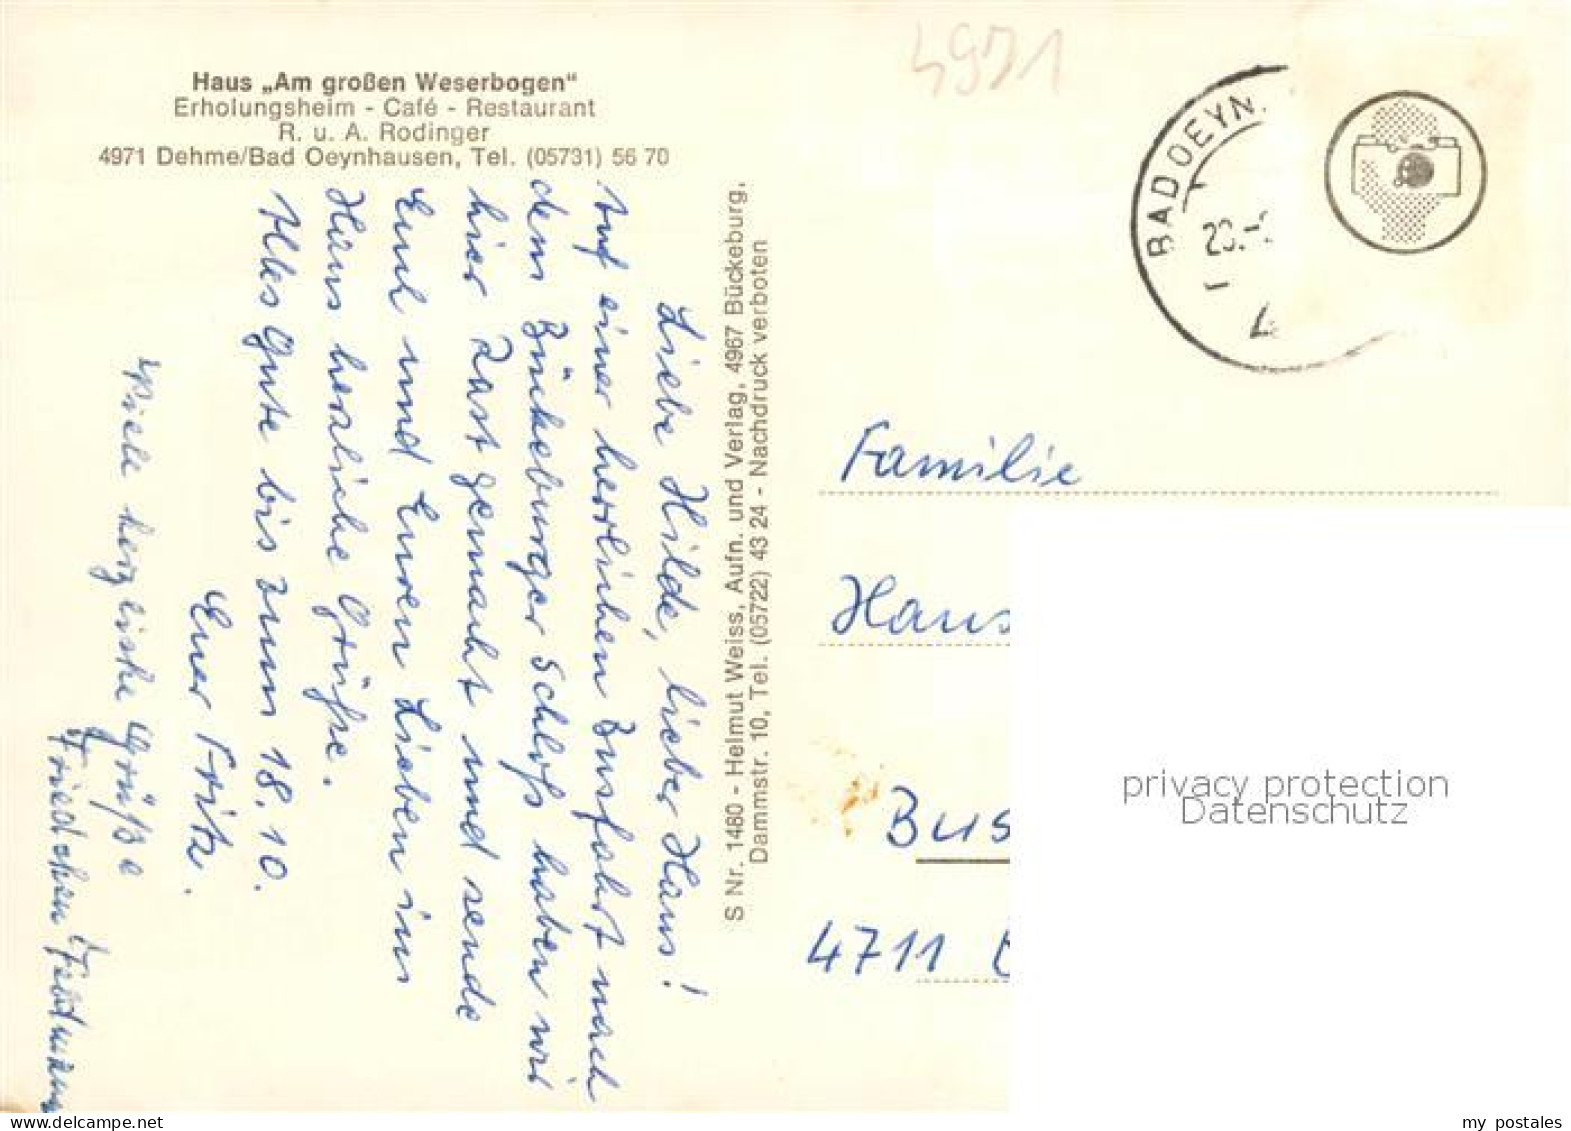 Haus „Am großen Weserbogen“
Erholungsheim - Café - Restaurant
R. u. A. Rodinger
4971 Dehme/Bad Oeynhausen, Tel. (05731) 56 70
Liebe Hilde, lieber Hans!
Auf einer herrlichen Busfahrt nach
dem Bückeburger Schloß haben wir
hier Rast gemacht und sende
Euch und Euren Lieben im
Haus herzliche Grüße.
Alles Gute bis zum 18.10.
Euer Fritz.
Viele herzliche Grüße
Friedchen
S Nr. 1480 - Helmut Weiss, Aufn. und Verlag, 4967 Bückeburg,
Dammstr. 10, Tel. (05722) 43 24 - Nachdruck verboten
4971
BAD OEYN
Familie
Hans
Bus
4711
privacy protection
Datenschutz
www.delcampe.net
my_postales